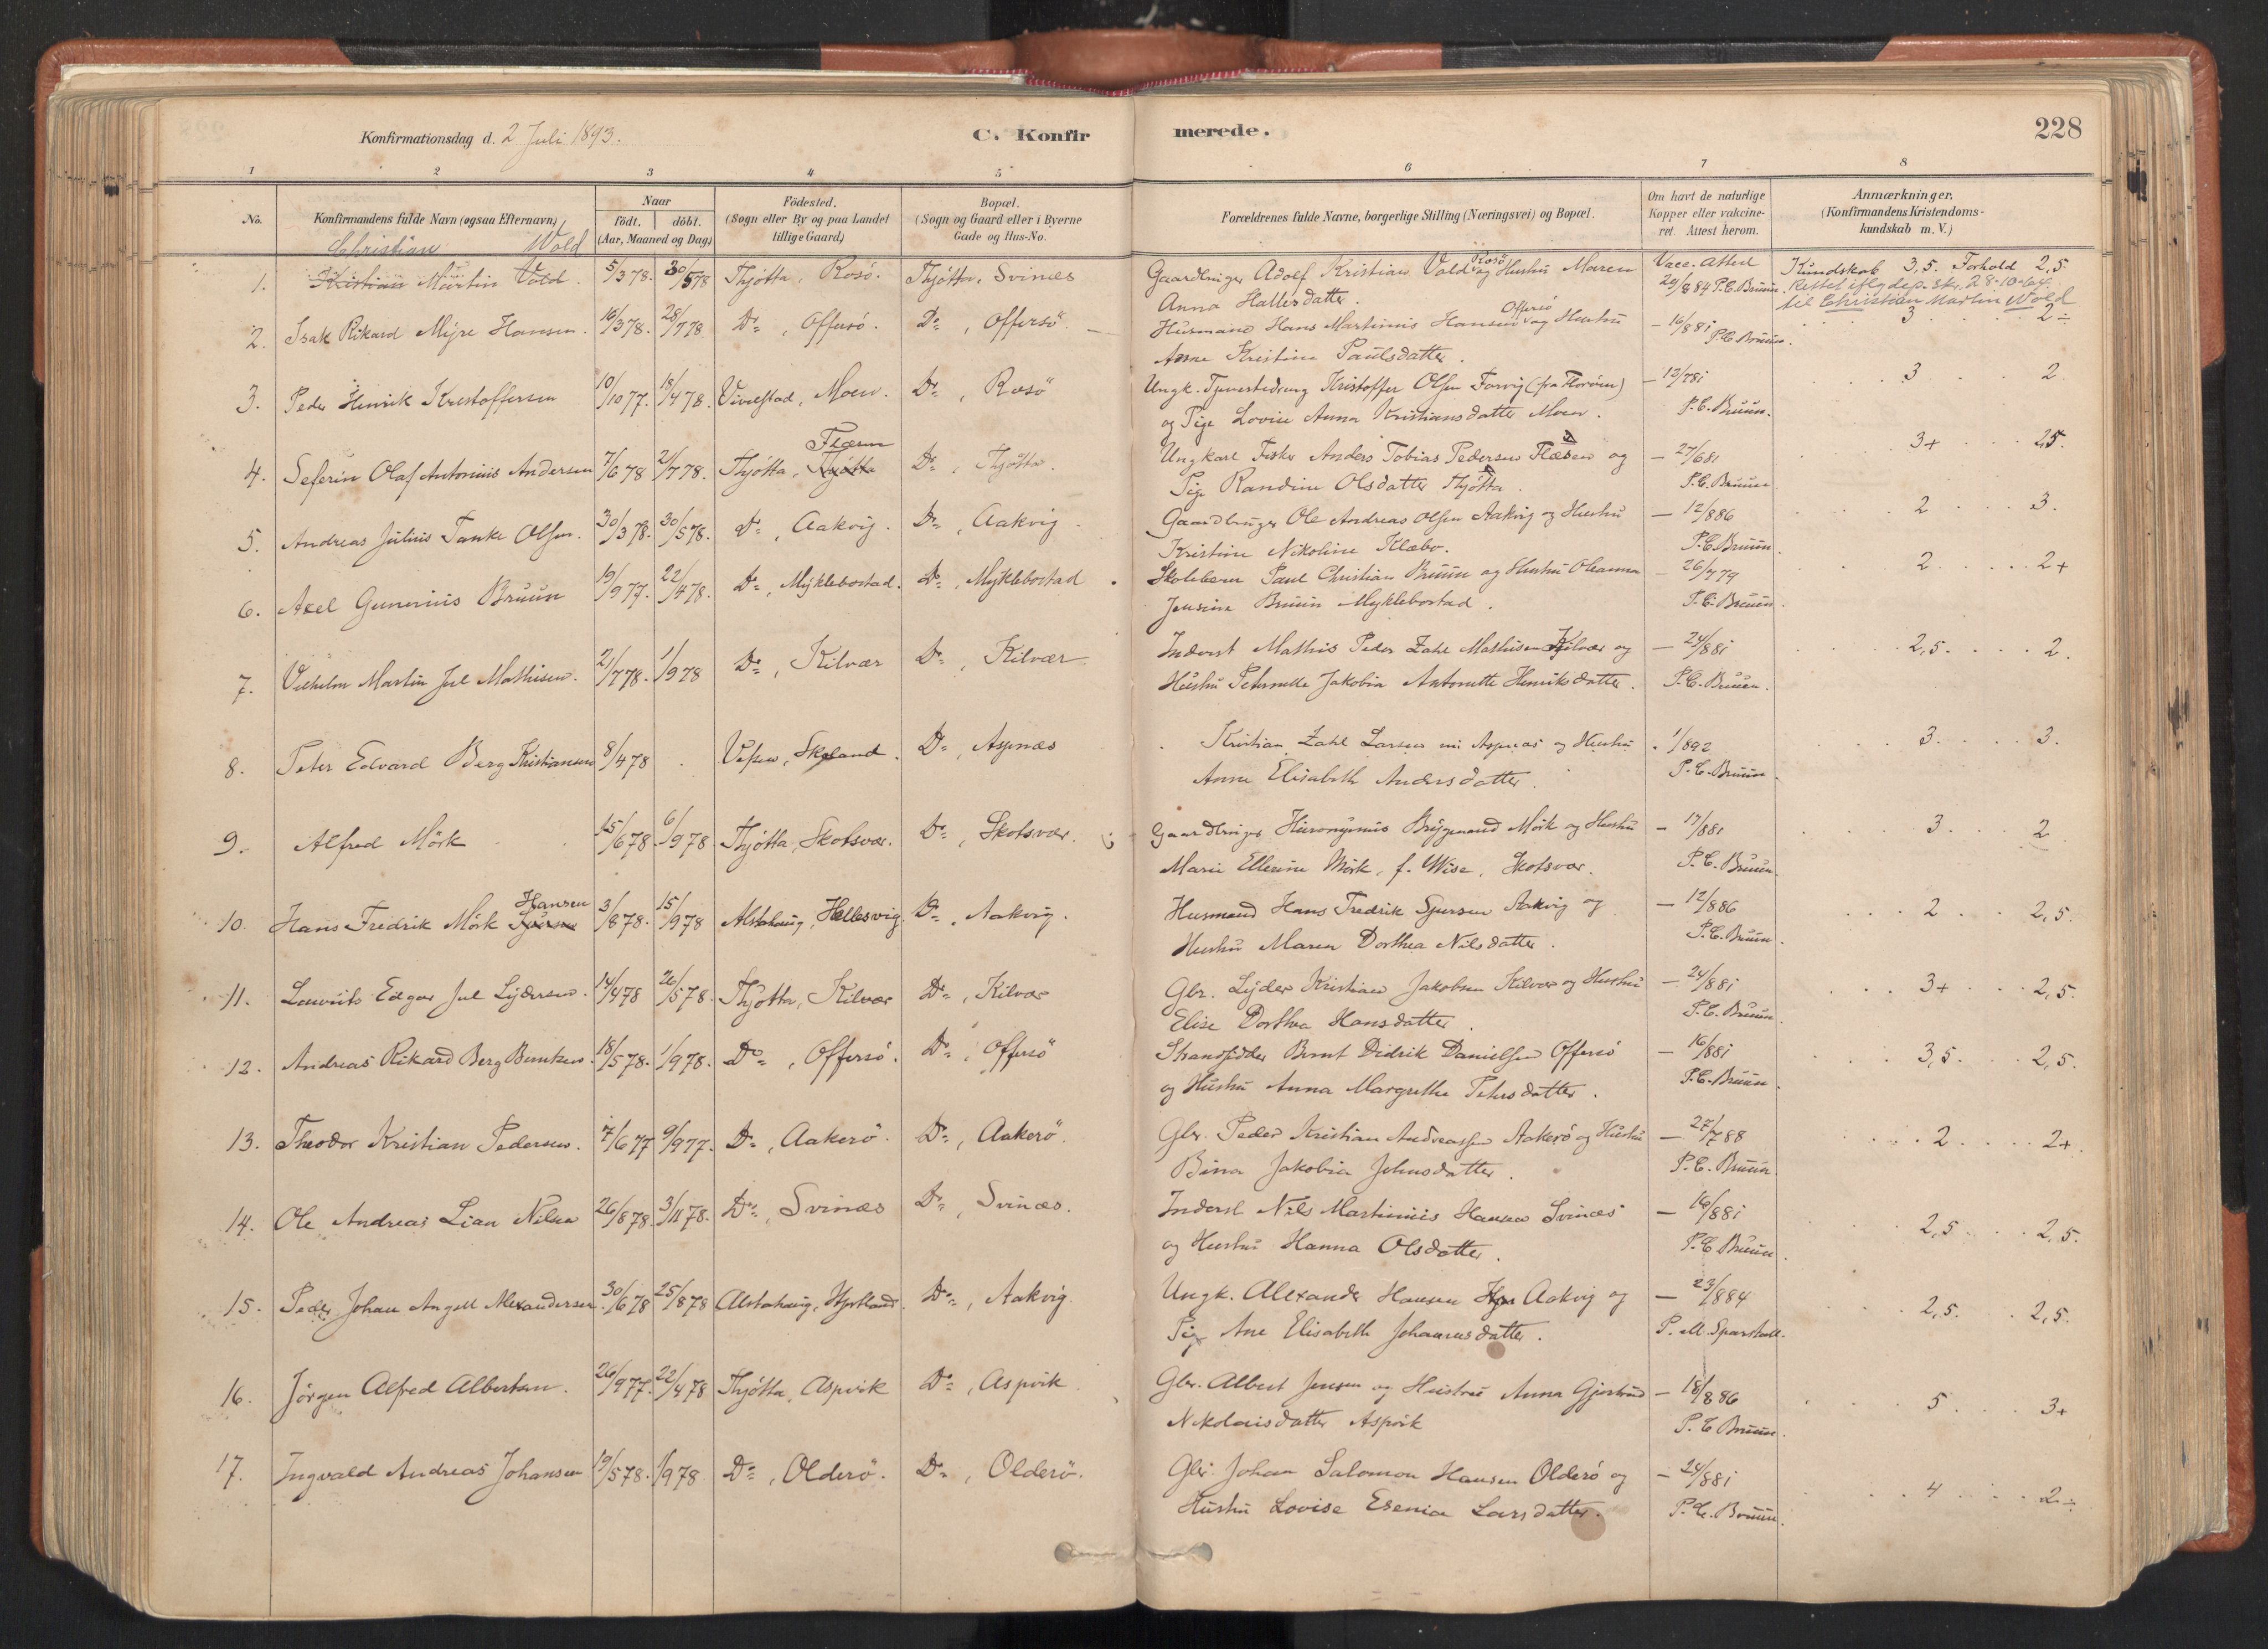 Konfirmationsdag d. 2 Juli 1893.
C. Konfirmerede.
228
1 2 3 4 5 6 7 8
No.
Konfirmandens fulde Navn (ogsaa Efternavn)
Naar
födt. döbt.
(Aar, Maaned og Dag)
Födested.
(Sogn eller By og paa Landet
tillige Gaard)
Bopæl.
(Sogn og Gaard eller i Byerne
Gade og Hus-No.
Forældrenes fulde Navne, borgerlige Stilling (Næringsvei) og Bopæl.
Om havt de naturlige
Kopper eller vakcine-
ret. Attest herom.
Anmærkninger.
(Konfirmandens Kristendoms-
kundskab m. V.)
Christian Wold
1. Kristian Martin Vold. 5/3 78. 30/5 78 Thjötta, Rosö. Thjötta, Svinæs Gaardbruger Adolf Kristian Vold Rosö og Hustru Maren Vacc. Attest Kundskab 3,5. Forhold 2,5.
Anna Hallesdatter. 20/8 84 P.C. Bruun. Rettet iflg dep. skr. 28-10-64
til Christian Martin Wold
2. Isak Rikard Mijre Hansen. 16/3 78. 28/7 78 Do, Offersö. Do, Offersö Husmand Hans Martinus Hansen Offersö og Hustru – 16/8 81 3 2÷
Anne Kristine Paulsdatter. P.C. Bruun.
3. Peder Henrik Kristoffersen 10/10 77. 18/4 78. Vivelstad, Moen. Do, Rosö Ungk. Tjenestedreng Kristoffer Olsen Forvig (fra Horöen) – 13/7 81 3 2
og Pige Lovise Anna Kristiansdatter Moen. P.C. Bruun.
Flæsen
4. Seferin Olaf Antonius Andersen 7/6 78 21/7 78. Thjötta, Thjötta Do, Thjötta. Ungkarl Fisker Anders Tobias Pedersen Flæsen og – 27/6 81 3+ 2,5.
Pige Randine Olsdatter Thjötta. P.C. Bruun
5. Andreas Julius Tanke Olsen. 30/3 78. 30/5 78. Do, Aakvig. Do, Aakvig Gaardbruger Ole Andreas Olsen Aakvig og Hustru – 12/8 86 2 3.
Kristine Nikoline Klæbo. P.C. Bruun.
6. Axel Gunerius Bruun 19/9 77. 22/4 78. Do, Myklebostad. Do, Myklebostad. Skolelærer Paul Christian Bruun og Hustru Oleanna – 26/7 79 2 2+
Jensine Bruun Myklebostad. P.C. Bruun.
7. Vilhelm Martin Jul Mathisen. 21/7 78. 1/9 78 Do, Kilvær Do, Kilvær Inderst Mathis Peder Zahl Mathisen Kilvær og – 24/8 81 2,5. 2.
Hustru Petrnelle Jakobia Antonette Henriksdatter. P.C. Bruun.
8. Peter Edvard Berg Kristiansen 8/4 78 Vefsen, Skoland. Do, Aspnæs Kristian Zahl Larsen Aspnæs og Hustru. 1/8 92 3. 3.
Anne Elisabeth Andersdatter. P.C. Bruun.
9. Alfred Mörk 15/6 78. 6/9 78. Thjötta, Skotsvær. Do, Skotsvær. Gaardbruger Hieronymus Brygmand Mörk og Hustru – 17/8 81 3. 2
Marie Ellerine Mörk, f. Wise, Skotsvær. P.C. Bruun.
Hansen
10. Hans Fredrik Mörk Sjursen 3/8 78. 15/9 78 Alstahaug, Hellesvig. Do, Aakvig. Husmand Hans Fredrik Sjursen Aakvig og – 12/8 86 2 2,5.
Hustru Maren Dorthea Nilsdatter. P.C. Bruun.
11. Lauritz Edgar Jul Lydersen. 14/4 78 26/5 78. Thjötta, Kilvær Do, Kilvær Gbr. Lyder Kristian Jakobsen Kilvær og Hustru – 24/8 81 3+ 2,5.
Elise Dorthea Hansdatter. P.C. Bruun.
12. Andreas Rikard Berg Berntsen. 18/5 78. 1/9 78. Do, Offersö. Do, Offersö Strandsidder Bernt Didrik Danielsen Offersö – 16/8 81 3,5. 2,5.
og Hustru Anna Margrethe Petersdatter. P.C. Bruun.
13. Theodor Kristian Pedersen. 7/6 77 9/9 77. Do, Aakerö. Do, Aakerö. Gbr. Peder Kristian Andreassen Aakerö og Hustru – 27/7 88 2 2+
Bina Jakobia Johnsdatter. P.C. Bruun.
14. Ole Andreas Lian Nilsen 26/8 78. 3/11 78. Do, Svinæs Do, Svinæs. Inderst Nils Martinius Hansen Svinæs – 16/8 81 2,5 2,5.
og Hustru Hanna Olsdatter. P.C. Bruun.
15. Peder Johan Angell Alexandersen 30/6 78 25/8 78 Alstahaug, Hjortland. Do, Aakvig. Ungk. Alexander Hansen Aakvig og – 23/8 84 2,5. 2,5.
Pige Ane Elisabeth Johannesdatter. P. M. Sparshall.
16. Jörgen Alfred Albertsen. 26/9 77. 22/4 78 Thjötta, Aspvik Do, Aspvik Gbr. Albert Jensen og Hustru Anna Gjertrud – 18/8 86 5 3+
Nikolaisdatter Aspvik P.C. Bruun.
17. Ingvald Andreas Johansen 19/5 78. 1/9 78 Do, Olderö. Do, Olderö. Gbr. Johan Salomon Hansen Olderö og – 24/8 81 4 2÷
Hustru Lovise Esenia Larsdatter. P.C. Bruun.